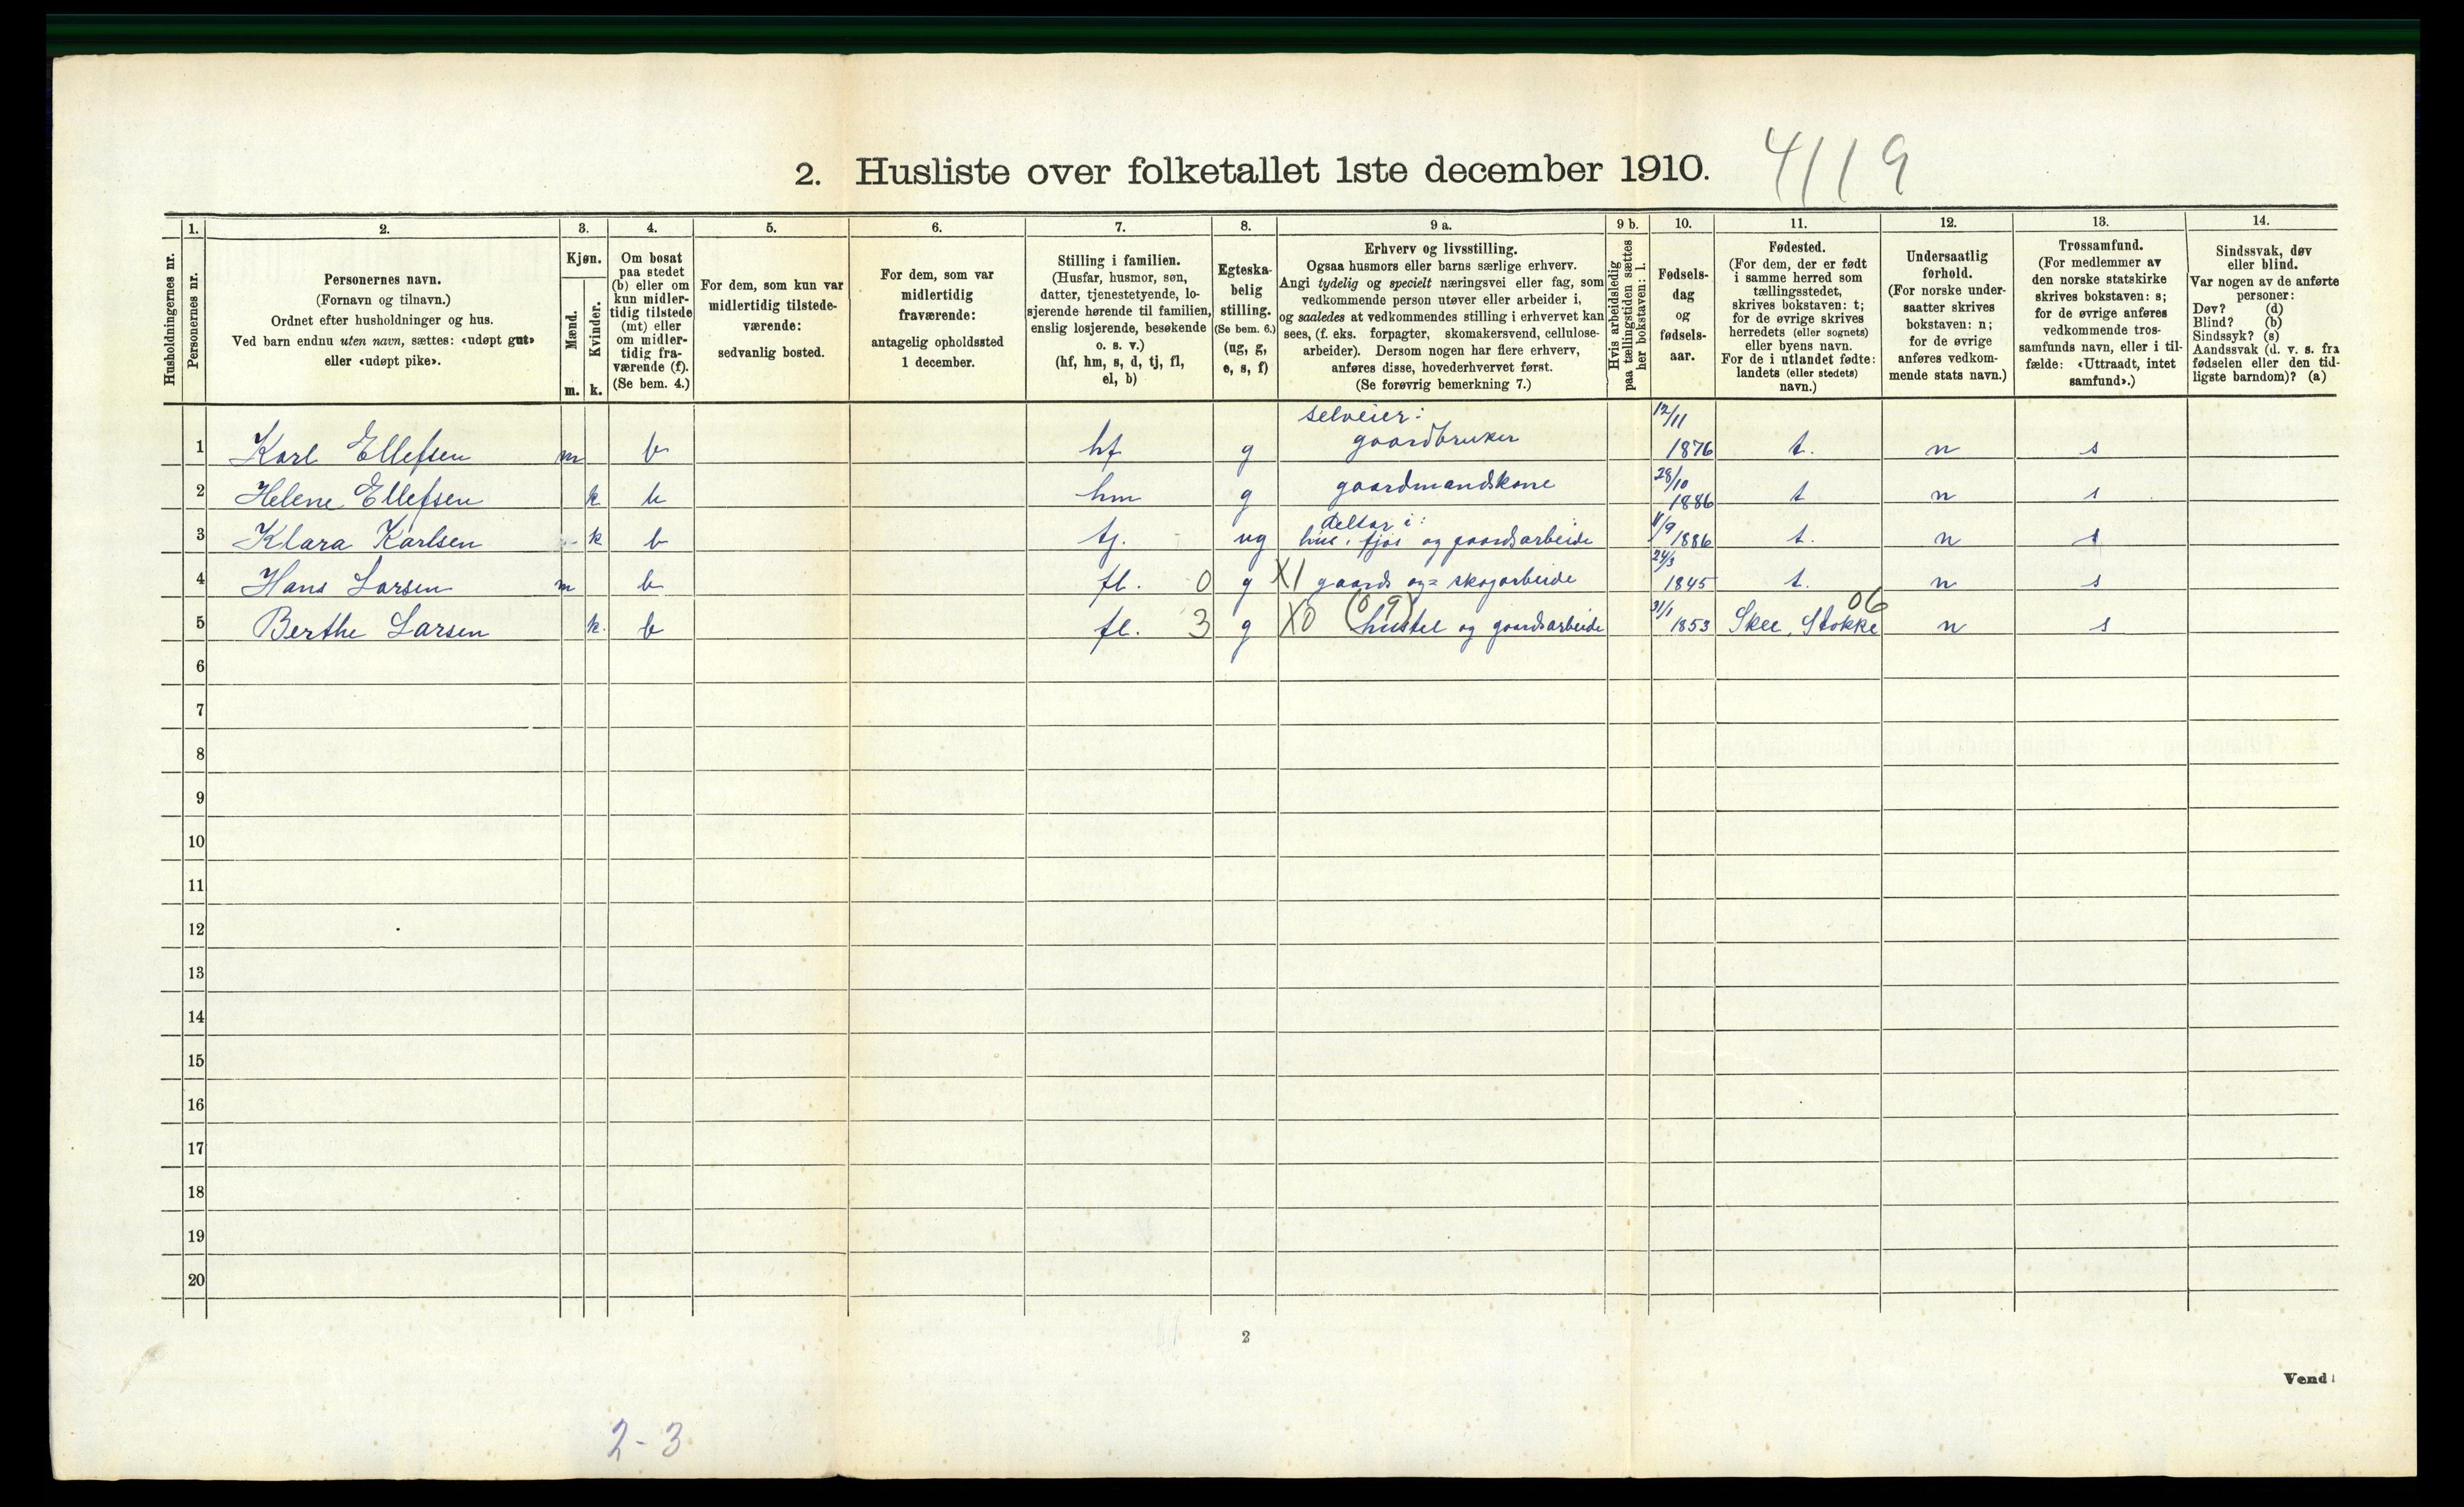 2. Husliste over folketallet 1ste december 1910. 4119
Husholdningernes nr.
1.
Personernes nr.
2.
Personernes navn.
(Fornavn og tilnavn.)
Ordnet efter husholdninger og hus.
Ved barn endnu uten navn, sættes: «udøpt gut»
eller «udøpt pike».
3.
Kjøn.
Mænd.
m.
Kvinder.
k.
4.
Om bosat
paa stedet
(b) eller om
kun midler-
tidig tilstede
(mt) eller
om midler-
tidig fra-
værende (f).
(Se bem. 4.)
5.
For dem, som kun var
midlertidig tilstede-
værende:
sedvanlig bosted.
6.
For dem, som var
midlertidig
fraværende:
antagelig opholdssted
1 december.
7.
Stilling i familien.
(Husfar, husmor, søn,
datter, tjenestetyende, lo-
sjerende hørende til familien,
enslig losjerende, besøkende
o. s. v.)
(hf, hm, s, d, tj, fl,
el, b)
8.
Egteska-
belig
stilling.
(Se bem. 6.)
(ug, g,
e, s, f)
9 a.
Erhverv og livsstilling.
Ogsaa husmors eller barns særlige erhverv.
Angi tydelig og specielt næringsvei eller fag, som
vedkommende person utøver eller arbeider i,
og saaledes at vedkommendes stilling i erhvervet kan
sees, (f. eks. forpagter, skomakersvend, cellulose-
arbeider). Dersom nogen har flere erhverv,
anføres disse, hovederhvervet først.
(Se forøvrig bemerkning 7.)
9 b.
Hvis arbeidsledig
paa tællingstiden sættes
her bokstaven: l.
10.
Fødsels-
dag
og
fødsels-
aar.
11.
Fødested.
(For dem, der er født
i samme herred som
tællingsstedet,
skrives bokstaven: t;
for de øvrige skrives
herredets (eller sognets)
eller byens navn.
For de i utlandet fødte:
landets (eller stedets)
navn.)
12.
Undersaatlig
forhold.
(For norske under-
saatter skrives
bokstaven: n;
for de øvrige
anføres vedkom-
mende stats navn.)
13.
Trossamfund.
(For medlemmer av
den norske statskirke
skrives bokstaven: s;
for de øvrige anføres
vedkommende tros-
samfunds navn, eller i til-
fælde: «Uttraadt, intet
samfund».)
14.
Sindssvak, døv
eller blind.
Var nogen av de anførte
personer:
Døv? (d)
Blind? (b)
Sindssyk? (s)
Aandssvak (d. v. s. fra
fødselen eller den tid-
ligste barndom)? (a)
1 Karl Ellefsen m b hf g selveier: gaardbruker 12/11 1876 t. n s
2 Helene Ellefsen k b hm g gaardmandskone 28/10 1886 t n s
3 Klara Karlsen k b tj. ug deltar i: hus, fjøs og gaardsarbeide 11/9 1886 t. n s
4 Hans Larsen m b fl. 0 g X1 gaards og= skogarbeide 24/3 1845 t. n s
5 Berthe Larsen k. b fl. 3 g X0 (0 9) hustel og gaardsarbeide 31/1 1853 Skee, Stokke 06 n s
6
7
8
9
10
11
12
13
14
15
16
17
18
19
20
2
Vend!
2-3